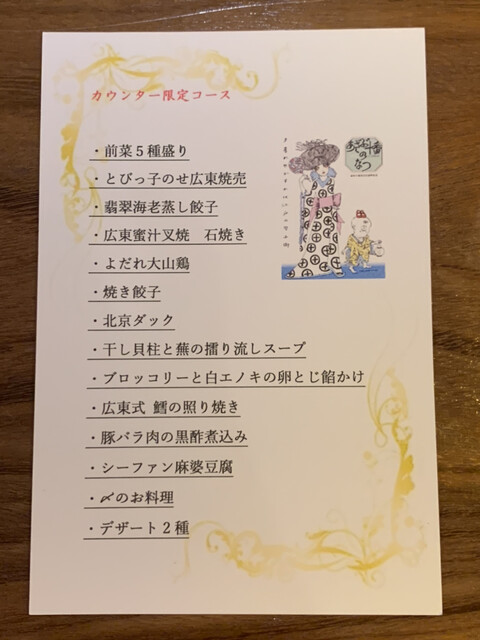 カウンター限定コース
・前菜５種盛り
・とびっ子のせ広東焼売
・翡翠海老蒸し餃子
・広東蜜汁叉焼　石焼き
・よだれ大山鶏
・焼き餃子
・北京ダック
・干し貝柱と蕪の擂り流しスープ
・ブロッコリーと白エノキの卵とじ餡かけ
・広東式 鱈の照り焼き
・豚バラ肉の黒酢煮込み
・シーファン麻婆豆腐
・〆のお料理
・デザート２種
あざぶ十番
の
なつ